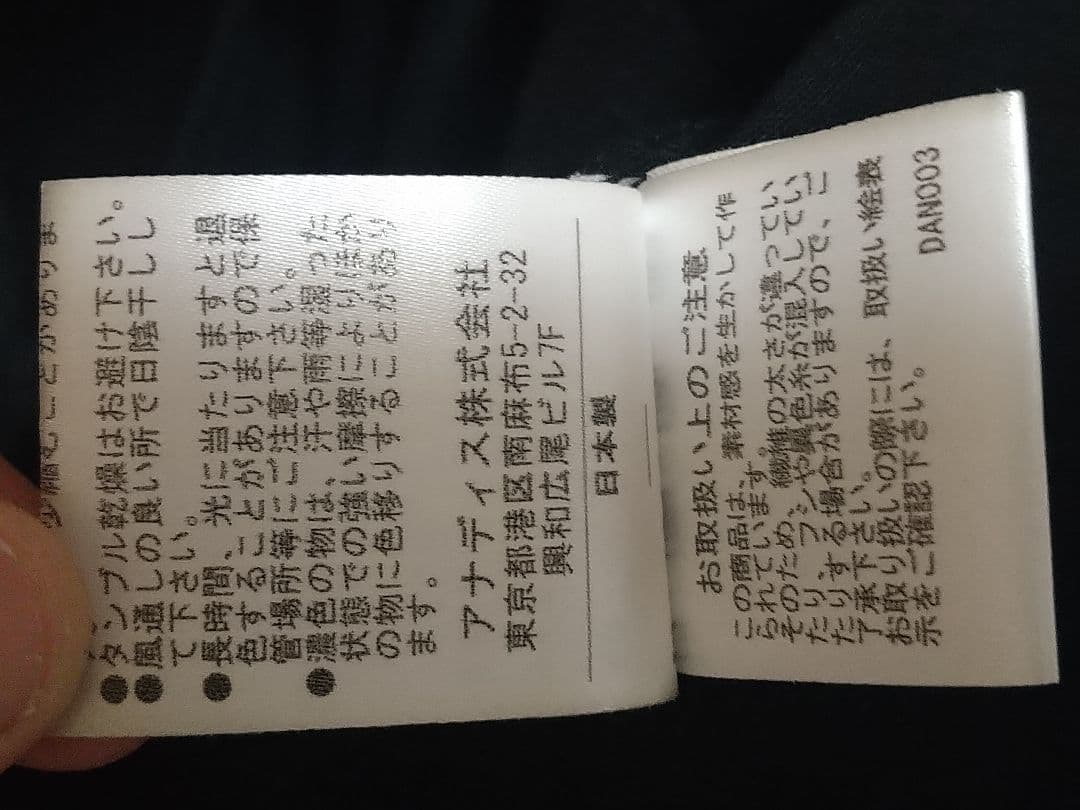 少縮むことがありま
●タンブル乾燥はお避け下さい。
●風通しの良い所で日陰干しし
て下さい。
●長時間、光に当たりますと退
色することがありますので保
管場所等にご注意下さい。
●濃色の物は、汗や雨等湿った
状態での強い摩擦によりほか
の物に色移りすることがあり
ます。
アナディス株式会社
東京都港区南麻布5-2-32
興和広尾ビル7F
日本製
お取扱い上のご注意
この商品は、素材感を生かして作
られています。
そのため、繊維の太さが違ってい
たり、フシや異色糸が混入してい
たりする場合がありますので、ご
了承下さい。
お取り扱いの際には、取扱い絵表
示をご確認下さい。
DAN003